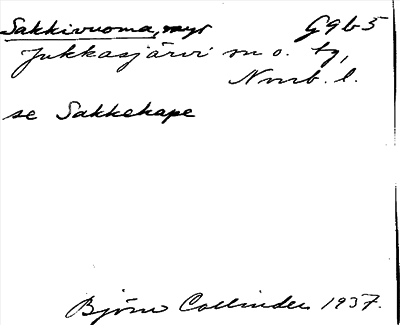 Sakkivuoma, myr G9b5
Jukkasjärvi sn o. tg,
Nmrb. l.
se Sakkekape
Björn Collinder 1937.